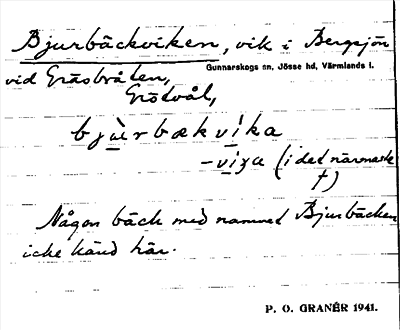 Bjurbäckviken, vik i Bergsjön
Gunnarskogs sn, Jösse hd, Värmlands l.
vid Gräsbråten,
bjùrbækvíka
-viga (i det närmaste
†)
Någon bäck med namnet Bjurbäcken
icke känd här.
P. O. GRANÉR 1941.